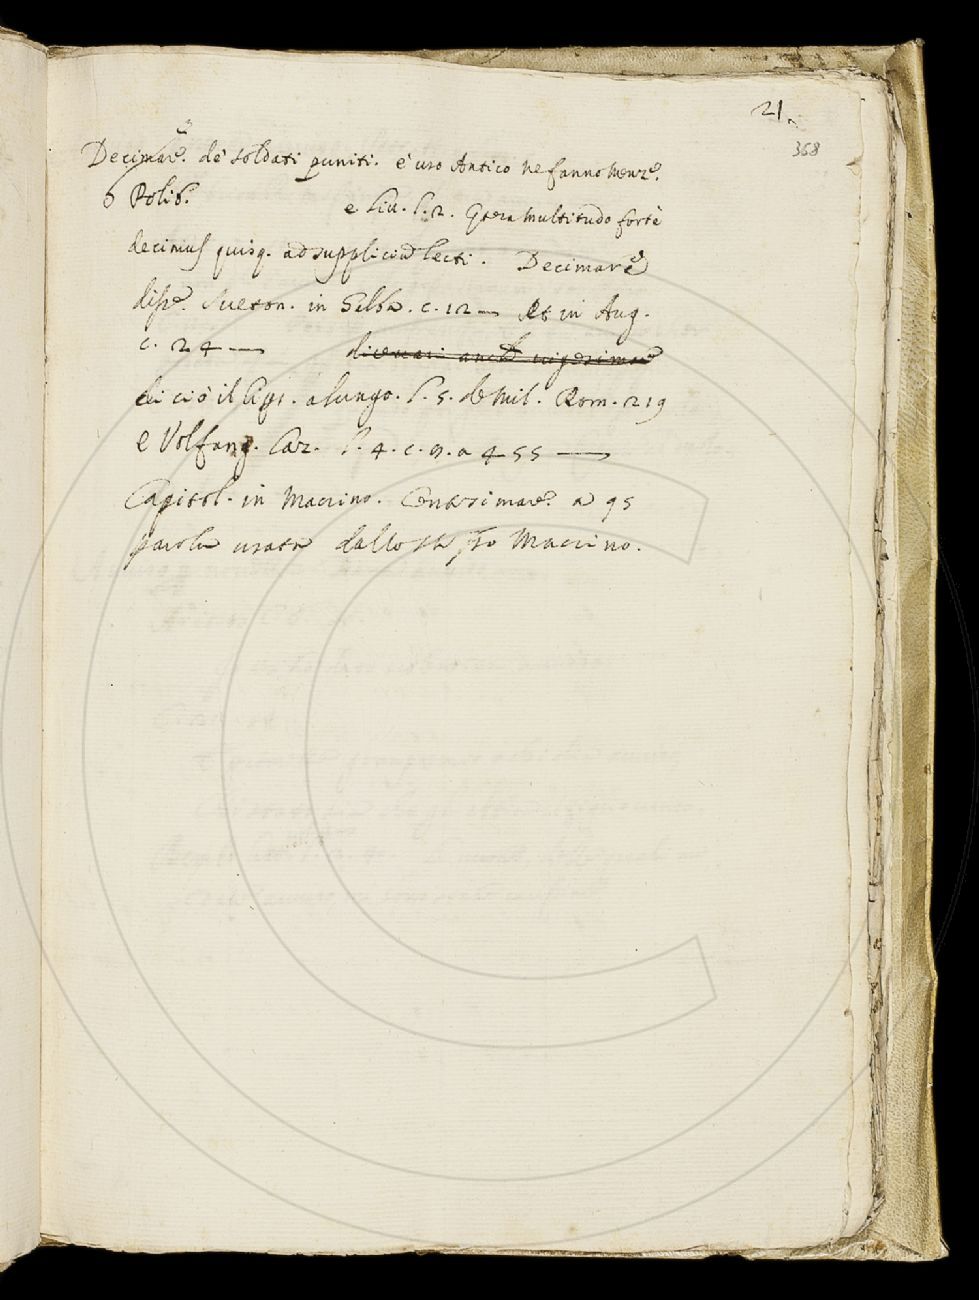 21.
368
Decimare. de' soldati puniti. è uso Antico ne fanno menze.
Polib. e Liu. l. 2. Cetera multitudo forte
decimus quisq. ad suppliciũ lecti. Decimare
disse Sueton. in Galba. c. 12 — Et in Aug.
c. 24 — dicevasi anche vigesimare
di ciò il Lips. a lungo. l. 5. de Mil. Rom. 219
e Volfang. Laz. l. 4. c. 9. a 455 —
Capitol. in Macrino. Centesimare a 95
parola usata dallo Macrino.